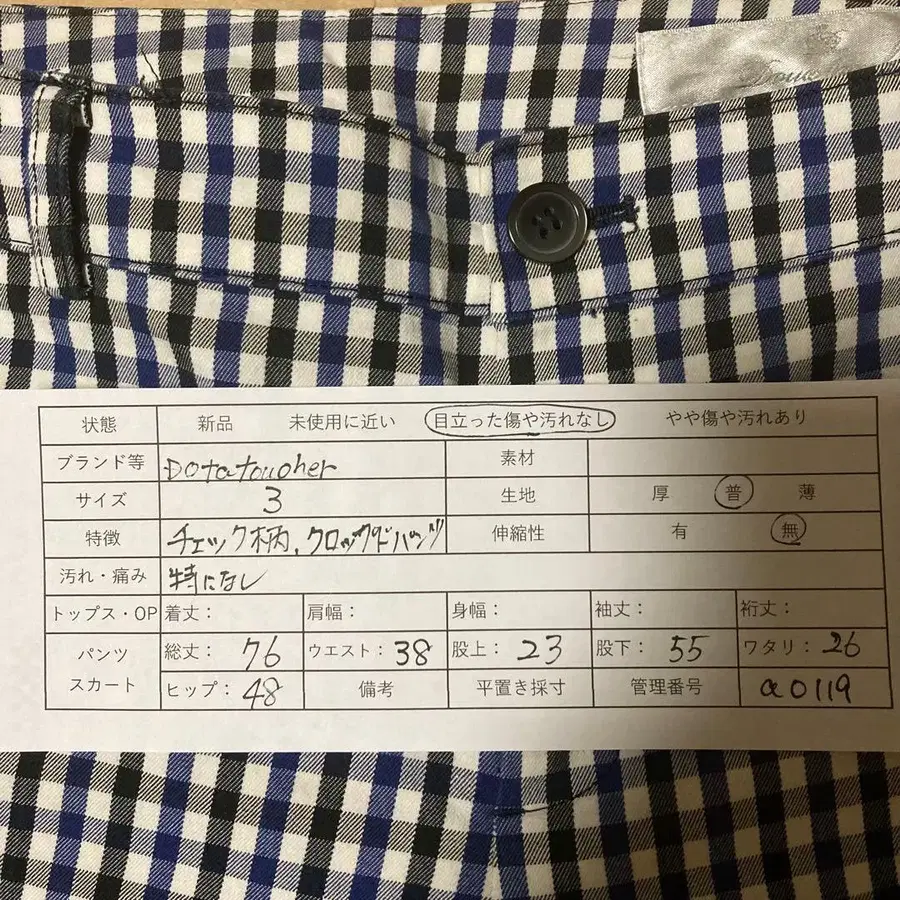 状態 新品 未使用に近い 目立った傷や汚れなし やや傷や汚れあり
ブランド等 Dotatougher 素材
サイズ 3 生地 厚 普 薄
特徴 チェック柄、クロップドパンツ 伸縮性 有 無
汚れ・痛み 特になし
トップス・OP 着丈: 肩幅: 身幅: 袖丈: 裄丈:
パンツ スカート 総丈: 76 ウエスト: 38 股上: 23 股下: 55 ワタリ: 26
ヒップ: 48 備考 平置き採寸 管理番号 a0119